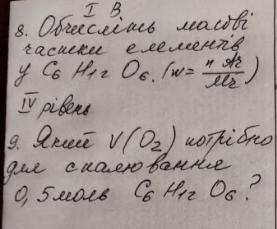 I В
8. Обчисліть масові
частки елементів
у C₆ H₁₂ O₆. (w = n Ar / Mr)
IV рівень
9. Який V(O₂) потрібно
для спалювання
0,5 моль C₆ H₁₂ O₆?